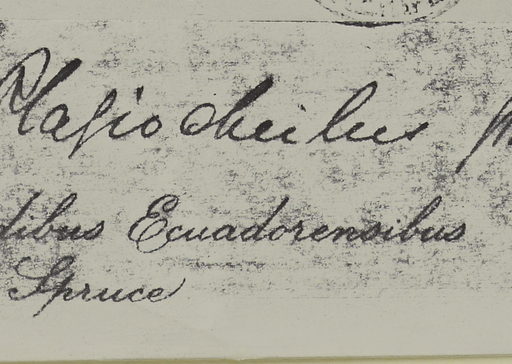 Plagiocheilus
dibus Ecuadorensibus
Spruce